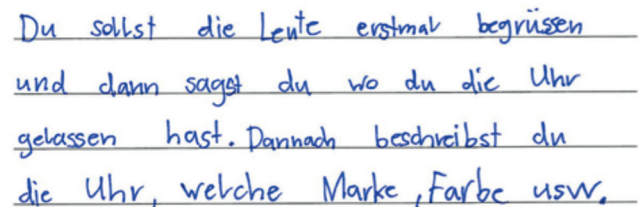 Du sollst die Leute erstmal begrüssen
und dann sagst du wo du die Uhr
gelassen hast. Dannach beschreibst du
die Uhr, welche Marke, Farbe usw.